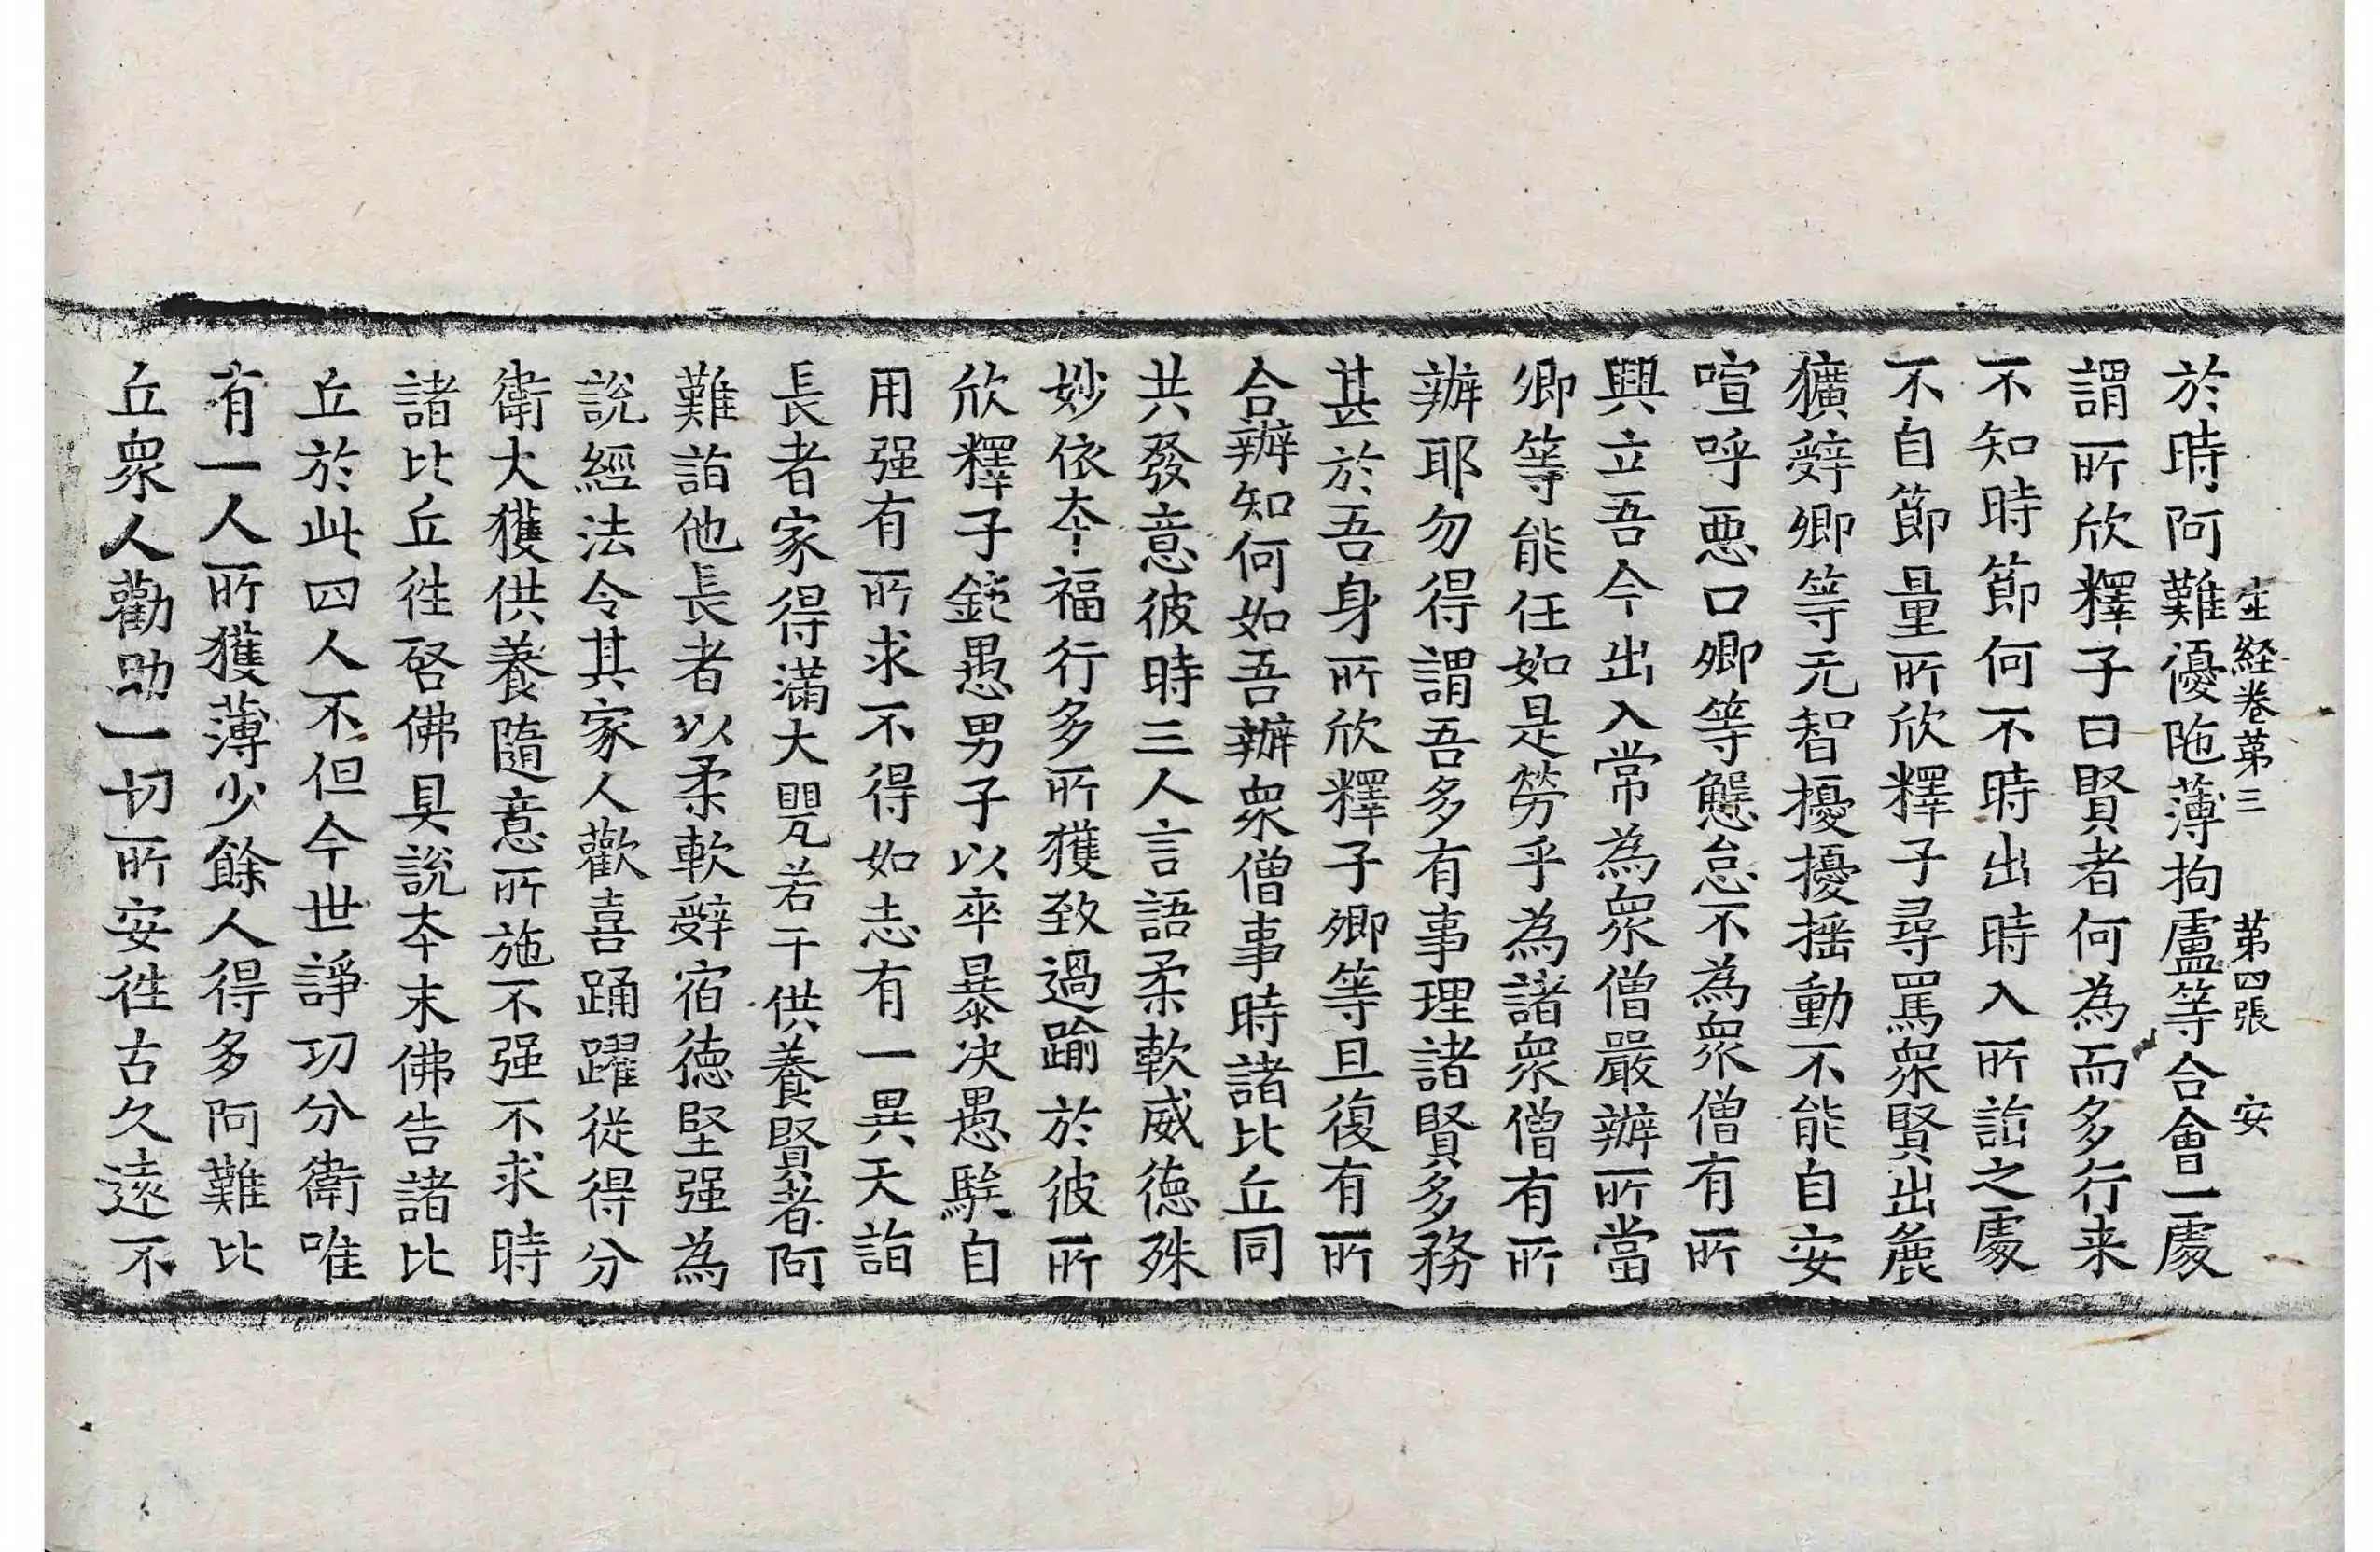 生経卷苐三　苐四張　安
於時阿難優陁薄拘盧等合會一處
謂所欣釋子曰賢者何為而多行来
不知時節何不時出時入所詣之處
不自節量所欣釋子尋罵衆賢出麁
獷辤卿等无智擾擾揺動不能自安
喧呼悪口卿等態怠不為衆僧有所
興立吾今出入常為衆僧嚴辦所當
卿等能任如是勞乎為諸衆僧有所
辦耶勿得謂吾多有事理諸賢多務
甚於吾身所欣釋子卿等且復有所
合辦知何如吾辦衆僧事時諸比丘同
共發意彼時三人言語柔軟威德殊
妙依夲福行多所獲致過踰於彼所
欣釋子愚男子以卒暴决愚騃自
用强有所求不得如志有一異天詣
長者家得滿大甖若干供養賢者阿
難詣他長者以柔軟辤宿德堅强為
說經法令其家人歡喜踊躍従得分
衛大獲供養隨意所施不强不求時
諸比丘徃啓佛具說夲末佛告諸比
丘於此四人不但今世諍功分衛唯
有一人所獲薄少餘人得多阿難比
丘衆人勸助一切所安徃古久遠不